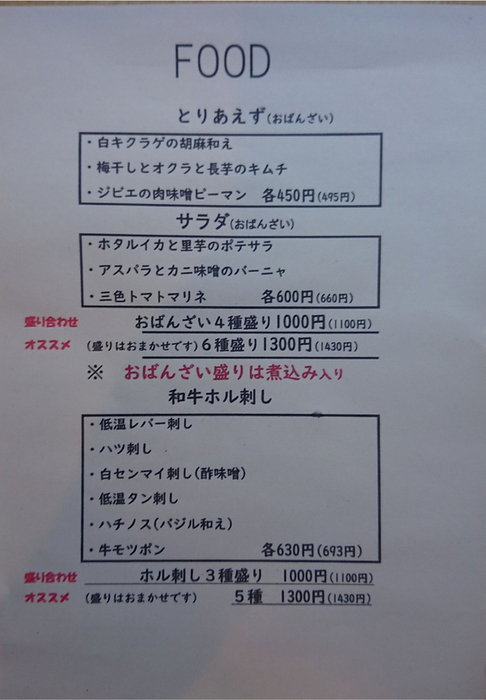 FOOD
とりあえず(おばんざい)
・白キクラゲの胡麻和え
・梅干しとオクラと長芋のキムチ
・ジビエの肉味噌ピーマン 各450円(495円)
サラダ(おばんざい)
・ホタルイカと里芋のポテサラ
・アスパラとカニ味噌のバーニャ
・三色トマトマリネ 各600円(660円)
盛り合わせ おばんざい4種盛り1000円(1100円)
オススメ (盛りはおまかせです)6種盛り1300円(1430円)
※ おばんざい盛りは煮込み入り
和牛ホル刺し
・低温レバー刺し
・ハツ刺し
・白センマイ刺し(酢味噌)
・低温タン刺し
・ハチノス(バジル和え)
・牛モツポン 各630円(693円)
盛り合わせ ホル刺し3種盛り 1000円(1100円)
オススメ (盛りはおまかせです) 5種 1300円(1430円)